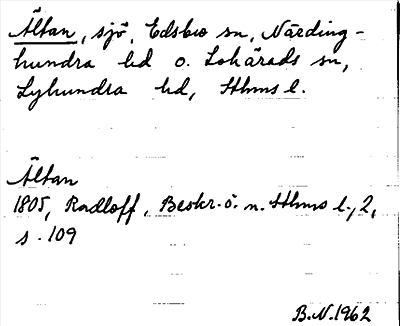 Ältan, sjö, Edsbro sn, Närding-
hundra hd o. Lohärads sn,
Lyhundra hd, Sthms l.
Ältan
1805, Radloff, Beskr. ö. n. Sthms l., 2,
s. 109
B.N. 1962